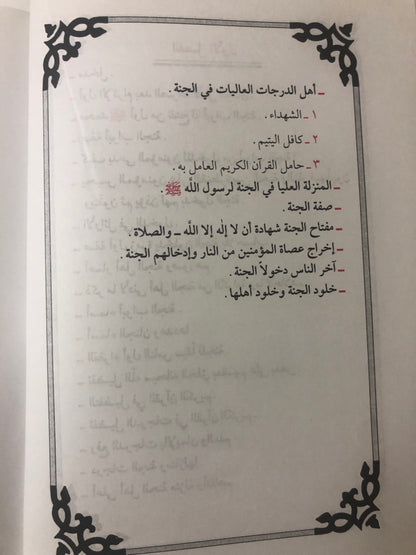 ـ أهل الدرجات العاليات في الجنة .
١ ـ الشهداء .
٢ ـ كافل اليتيم .
٣ ـ حامل القرآن الكريم العامل به .
ـ المنزلة العليا في الجنة لرسول الله ﷺ .
ـ صفة الجنة .
ـ مفتاح الجنة شهادة أن لا إله إلا الله ـ والصلاة .
ـ إخراج عصاة المؤمنين من النار وإدخالهم الجنة .
ـ آخر الناس دخولاً الجنة .
ـ خلود الجنة وخلود أهلها .